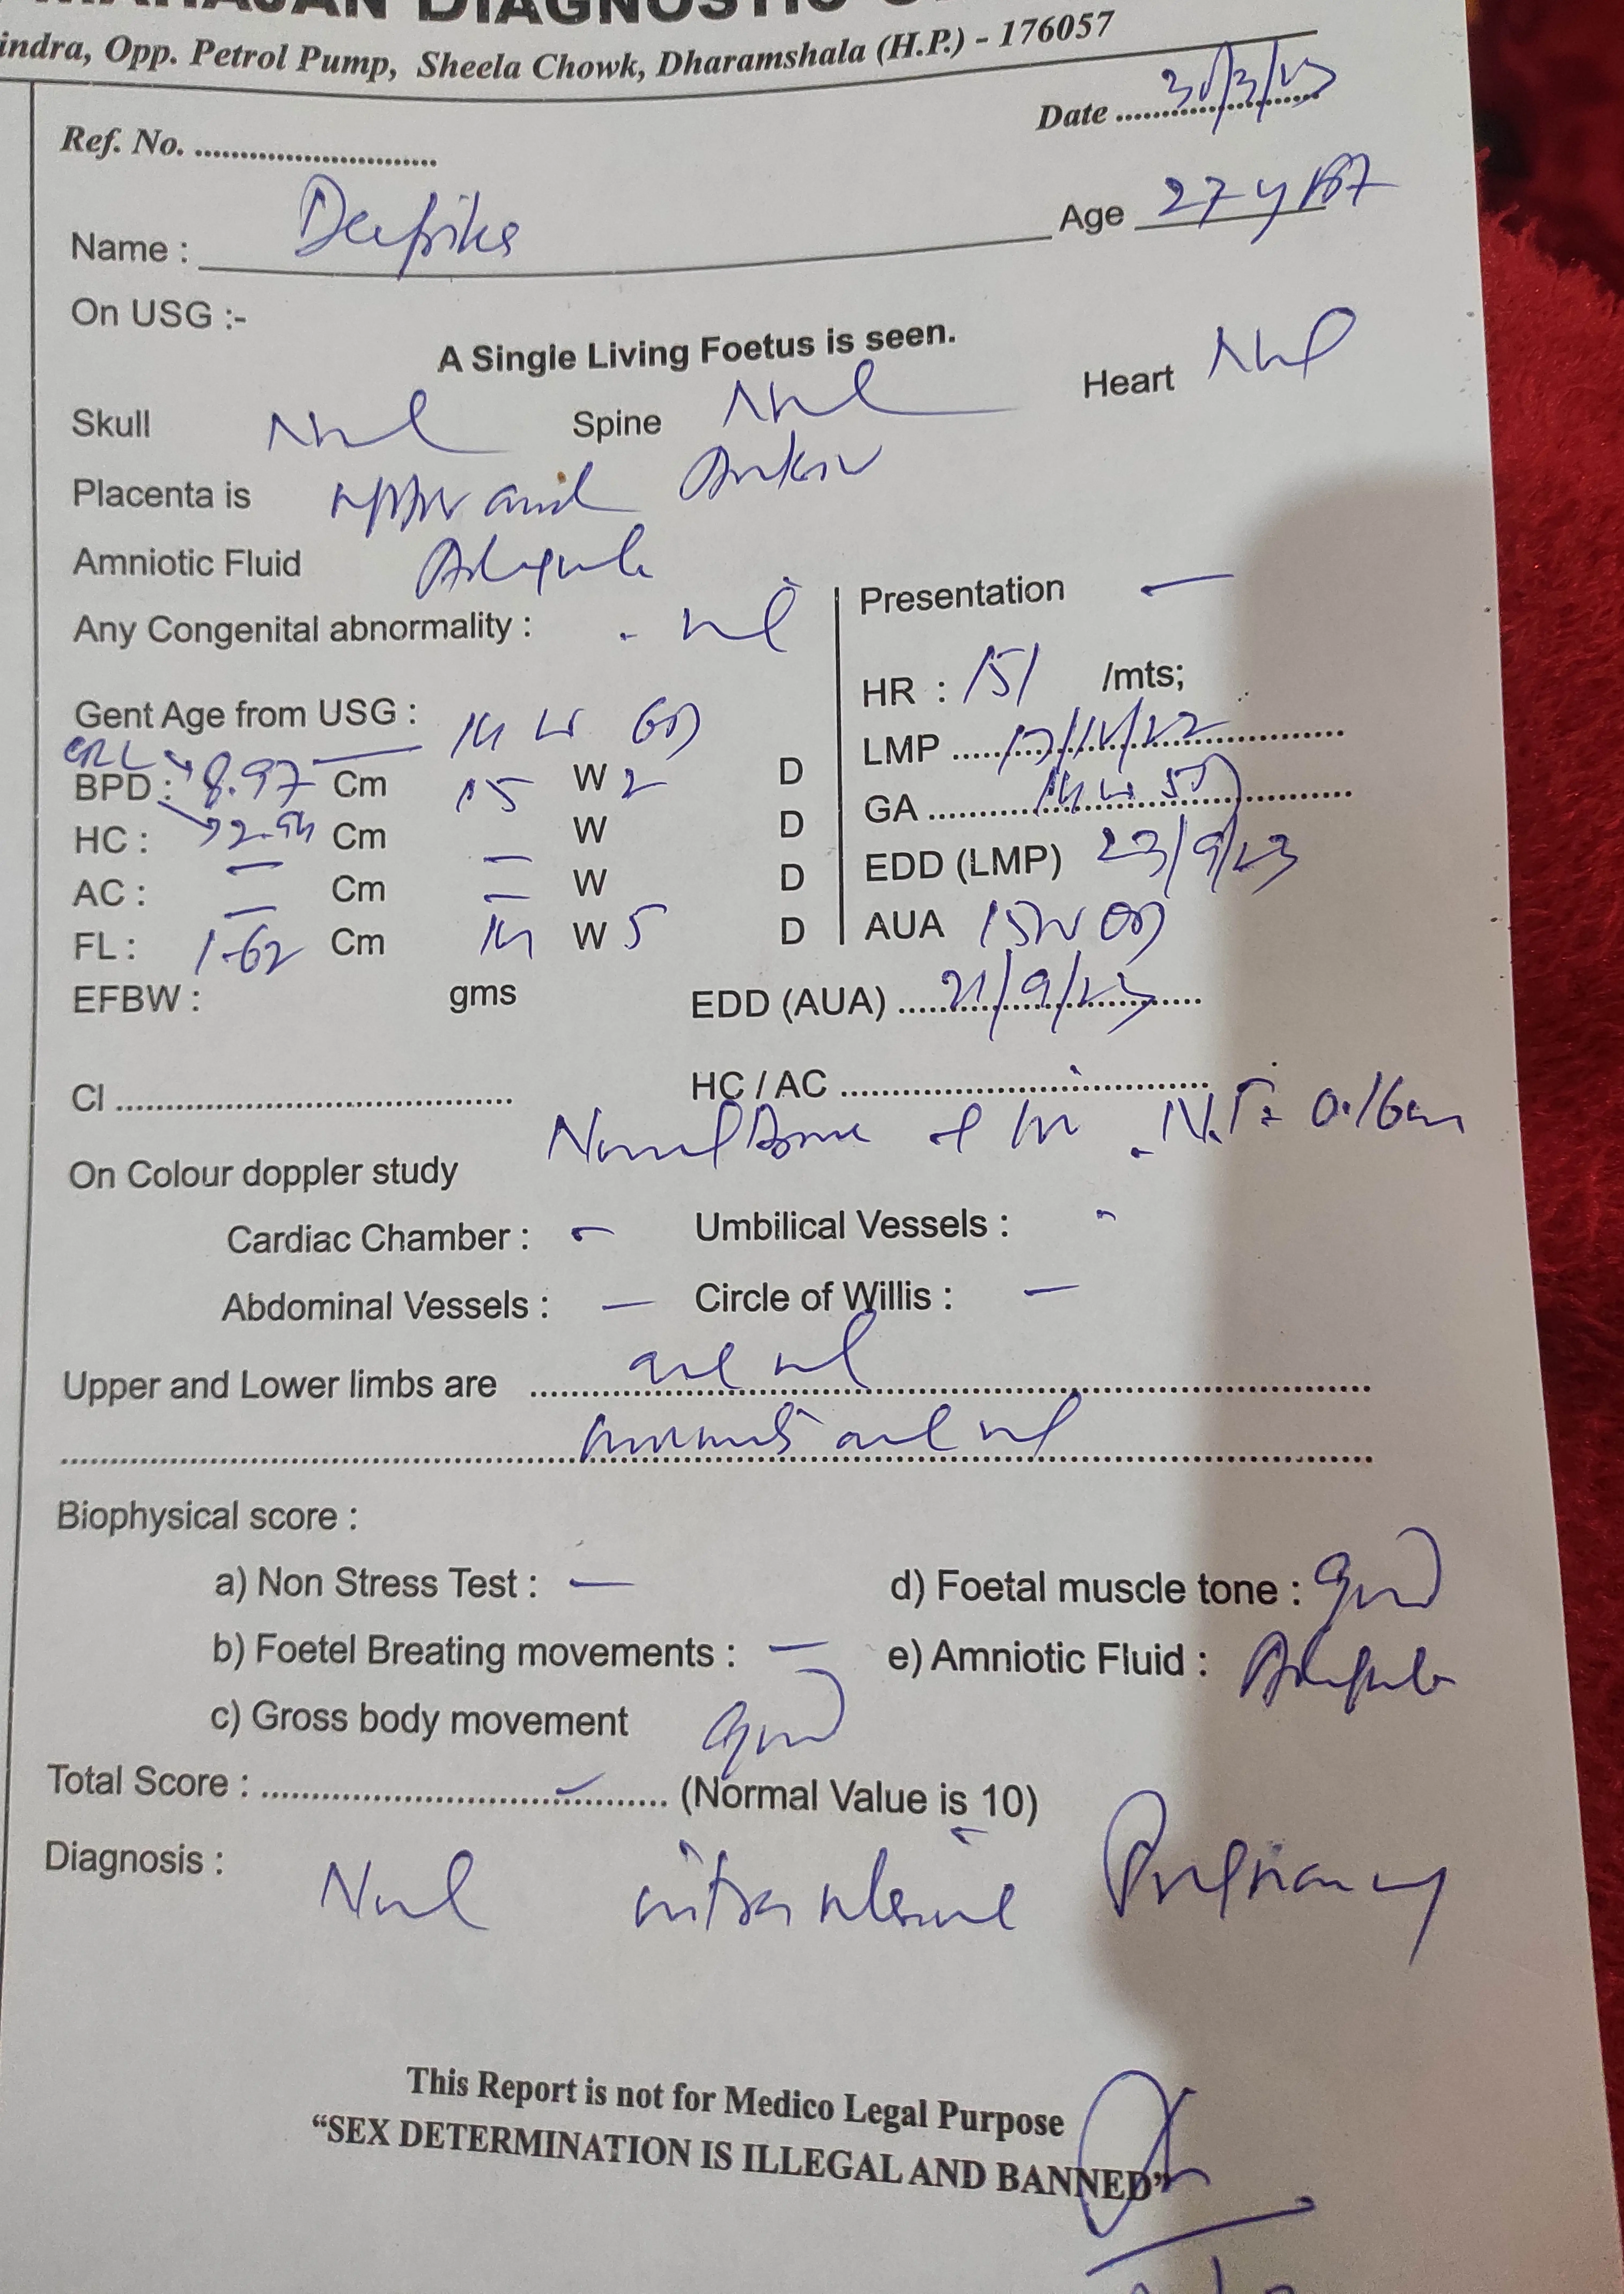 DIAGNOSTIC
indra, Opp. Petrol Pump, Sheela Chowk, Dharamshala (H.P.) - 176057
Date ..........30/3/23
Ref. No. ..........................
Name : Deepika Age 27 y
On USG :-
A Single Living Foetus is seen.
Skull Nml Spine Nml Heart Nml
Placenta is upper and Anterior
Amniotic Fluid Adequate
Any Congenital abnormality : - nil Presentation —
Gent Age from USG : 14 W 6D HR : 151 /mts;
CRL → 8.97 LMP ....../12/22
BPD : → 2.94 Cm 15 W 2 D GA ..........14 W 5D
HC : — Cm — W D EDD (LMP) 23/9/23
AC : — Cm — W D AUA 15W 0D
FL : 1.62 Cm 14 W 5 D
EFBW : gms EDD (AUA) ....21/9/23
CI ........................................ HC / AC .....................................
N.T = 0.16cm
On Colour doppler study
Cardiac Chamber : - Umbilical Vessels : -
Abdominal Vessels : — Circle of Willis : —
Upper and Lower limbs are are nl
movements are nl
Biophysical score :
a) Non Stress Test : — d) Foetal muscle tone : good
b) Foetel Breating movements : — e) Amniotic Fluid : Adequate
c) Gross body movement good
Total Score : ........................................ (Normal Value is 10)
Diagnosis : Nml intrauterine Pregnancy
This Report is not for Medico Legal Purpose
“SEX DETERMINATION IS ILLEGAL AND BANNED”